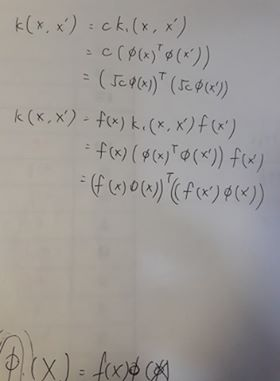 k(x, x') = ck₁(x, x')
= c(φ(x)ᵀφ(x'))
= (√c φ(x))ᵀ(√c φ(x'))
k(x, x') = f(x) k₁(x, x') f(x')
= f(x) (φ(x)ᵀφ(x')) f(x')
= (f(x) φ(x))ᵀ((f(x') φ(x'))
φ(x) = f(x)φ(x)